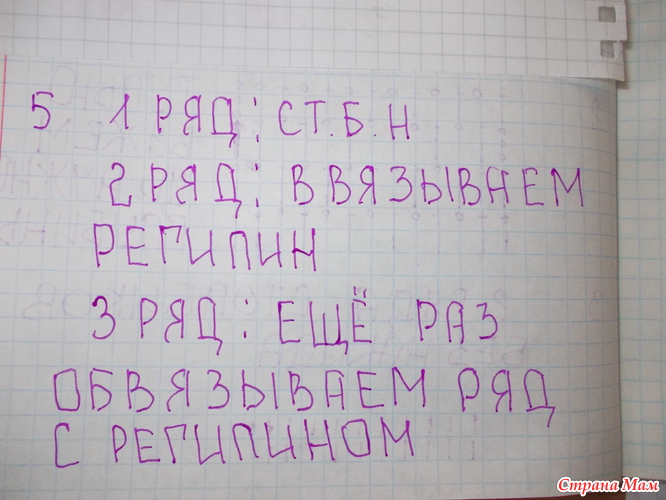 5 1 РЯД: СТ.Б.Н
2 РЯД: ВВЯЗЫВАЕМ
РЕГИЛИН
3 РЯД: ЕЩЁ РАЗ
ОБВЯЗЫВАЕМ РЯД
С РЕГИЛИНОМ
Страна Мам